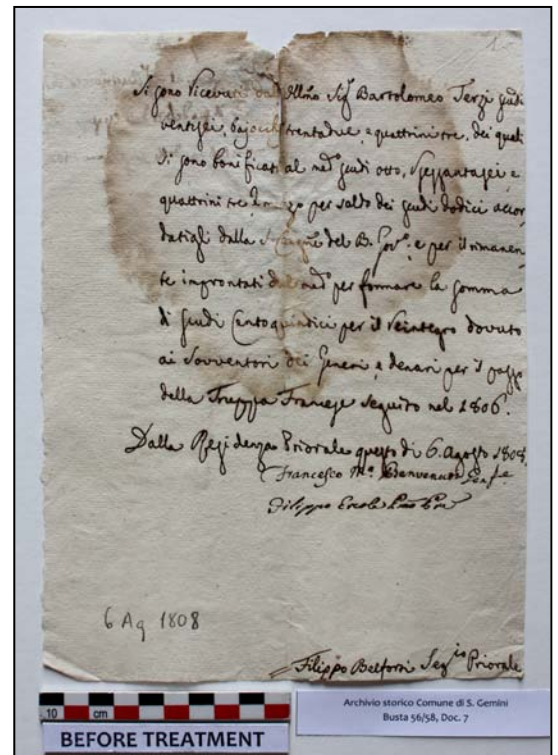 1.
Si sono ricevuti dal Illmo Sigr Bartolomeo Terzi scudi
ventisei, bajocchi trentadue, e quattrini tre, dei quali
si sono bonificati al medo scudi otto, sessantasei e
quattrini tre per saldo dei scudi dodici accor
datigli dalla S. Congne del B. Govo, e per il rimanen
te improntati dal medo per formare la somma
di scudi Centoquindici per il reintegro dovuto
ai Sovventori dei Generi, e denari per il passo
della Truppa Francese seguito nel 1806.
Dalla Residenza Priorale questo di 6. Agosto 1808
Francesco Ma Benvenuti
Filippo Ercole
6 Ag 1808
Filippo Belforti Segrio Priorale
10 cm
BEFORE TREATMENT
Archivio storico Comune di S. Gemini
Busta 56/58, Doc. 7